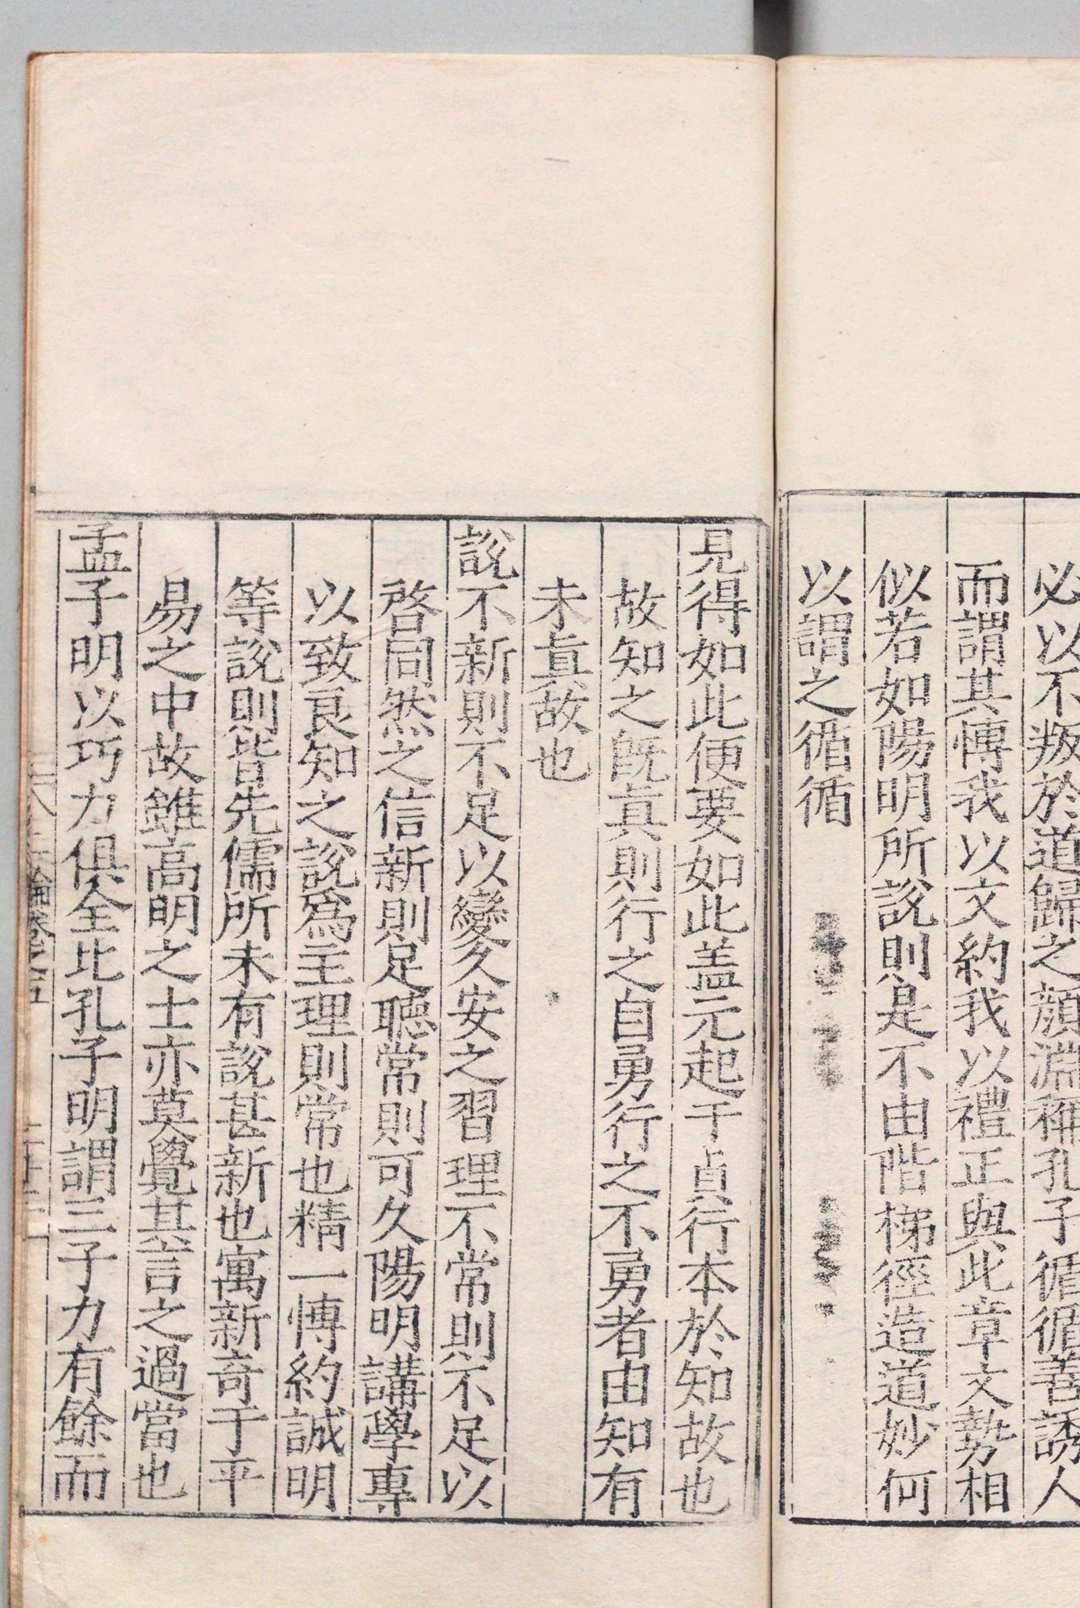 必以不叛於道歸之顏淵稱孔子循循善誘人
而謂其愽我以文約我以禮正與此章文勢相
似若如陽明所説則是不由階梯徑造道妙何
以謂之循循
見得如此便要如此盖元起于貞行本於知故也
故知之旣眞則行之自勇行之不勇者由知有
未眞故也
説不新則不足以變久安之習理不常則不足以
啓同然之信新則足聴常則可久陽明講學專
以致良知之説爲主理則常也精一愽約誠明
等説則皆先儒所未有説甚新也寓新奇于平
易之中故雖高明之士亦莫覺其言之過當也
孟子明以巧力俱全比孔子明謂三子力有餘而